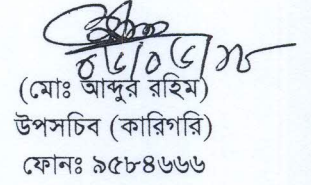 (মোঃ আব্দুর রহিম)
উপসচিব (কারিগরি)
ফোনঃ ৯৫৮৪৬৬৬